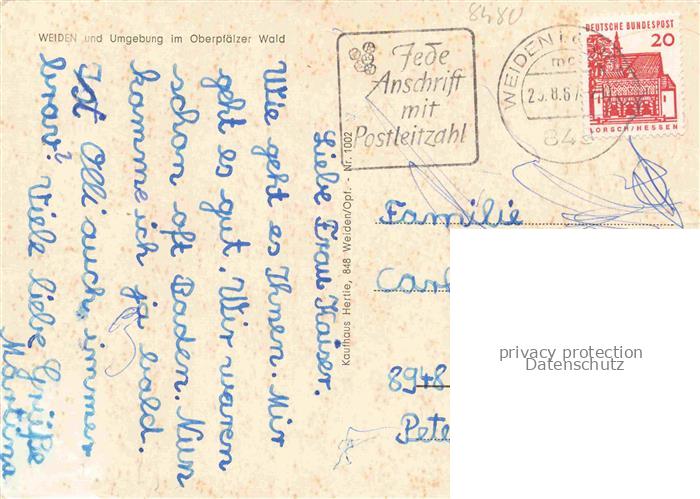 8480
WEIDEN und Umgebung im Oberpfälzer Wald
Jede
Anschrift
mit
Postleitzahl
WEIDEN i.d.
DEUTSCHE BUNDESPOST
20
LORSCH/HESSEN
Kaufhaus Hertie, 848 Weiden/Opf. - Nr. 1002
Liebe Frau Kaiser.
Wie geht es Ihnen. Mir
geht es gut. Wir waren
schon oft Baden. Nun
komme ich ja bald.
Ist Olli auch immer
brav? Viele liebe Grüße
Martina
Familie
Carl
8948
Pete
privacy protection
Datenschutz